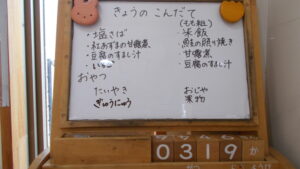 きょうのこんだて
・塩さば
・紅あずまの甘露煮
・豆腐のすまし汁
・いちご
おやつ
たいやき
ぎゅうにゅう
(もも組)
・米飯
・鮭の照り焼き
・甘露煮
・豆腐のすまし汁
おじや
果物
0319